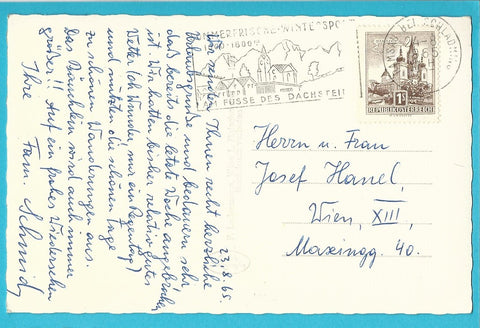 SOMMERFRISCHE-WINTERSPO
-1800
AM FUSSE DES DACHSTEIN
BEI SCHLADM
1S
REPUBLIK ÖSTERREICH
23.8.65
Wir senden Ihnen recht herzliche
Urlaubsgrüße und bedauern sehr
daß bereits die letzte Woche angebrochen
ist. Wir hatten bisher relativ gutes
Wetter (oh Wunder, nur ein Regentag)
und nützten die schönen Tage
zu schönen Wanderungen aus.
Das Bäuchlein wird auch immer
größer!!! Auf ein frohes Wiedersehen
Ihre Fam. Schmid
Herrn u. Frau
Josef Hanel,
Wien, XIII,
Maxingg. 40.